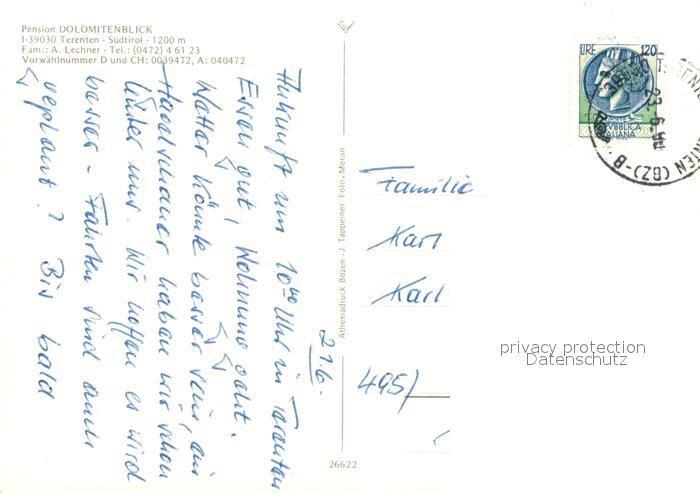 Pension DOLOMITENBLICK
I-39030 Terenten - Südtirol - 1200 m
Fam.: A. Lechner - Tel.: (0472) 4 61 23
Vorwählnummer D und CH: 0039472, A: 040472
21.6.
Ankunft um 10⁰⁰ Uhr in Terenten
Essen gut, Wohnung geht.
Wetter könnte besser sein, ein
Hagelschauer haben wir schon
hinter uns. Wir hoffen es wird
besser - Fahrten sind auch
geplant? Bis bald
Athesiadruck Bozen - J. Tappeiner Foto - Meran
26622
LIRE 120
REPUBBLICA
ITALIANA
23.6.
(BZ) - B
Familie
Karl
Karl
495/
privacy protection
Datenschutz